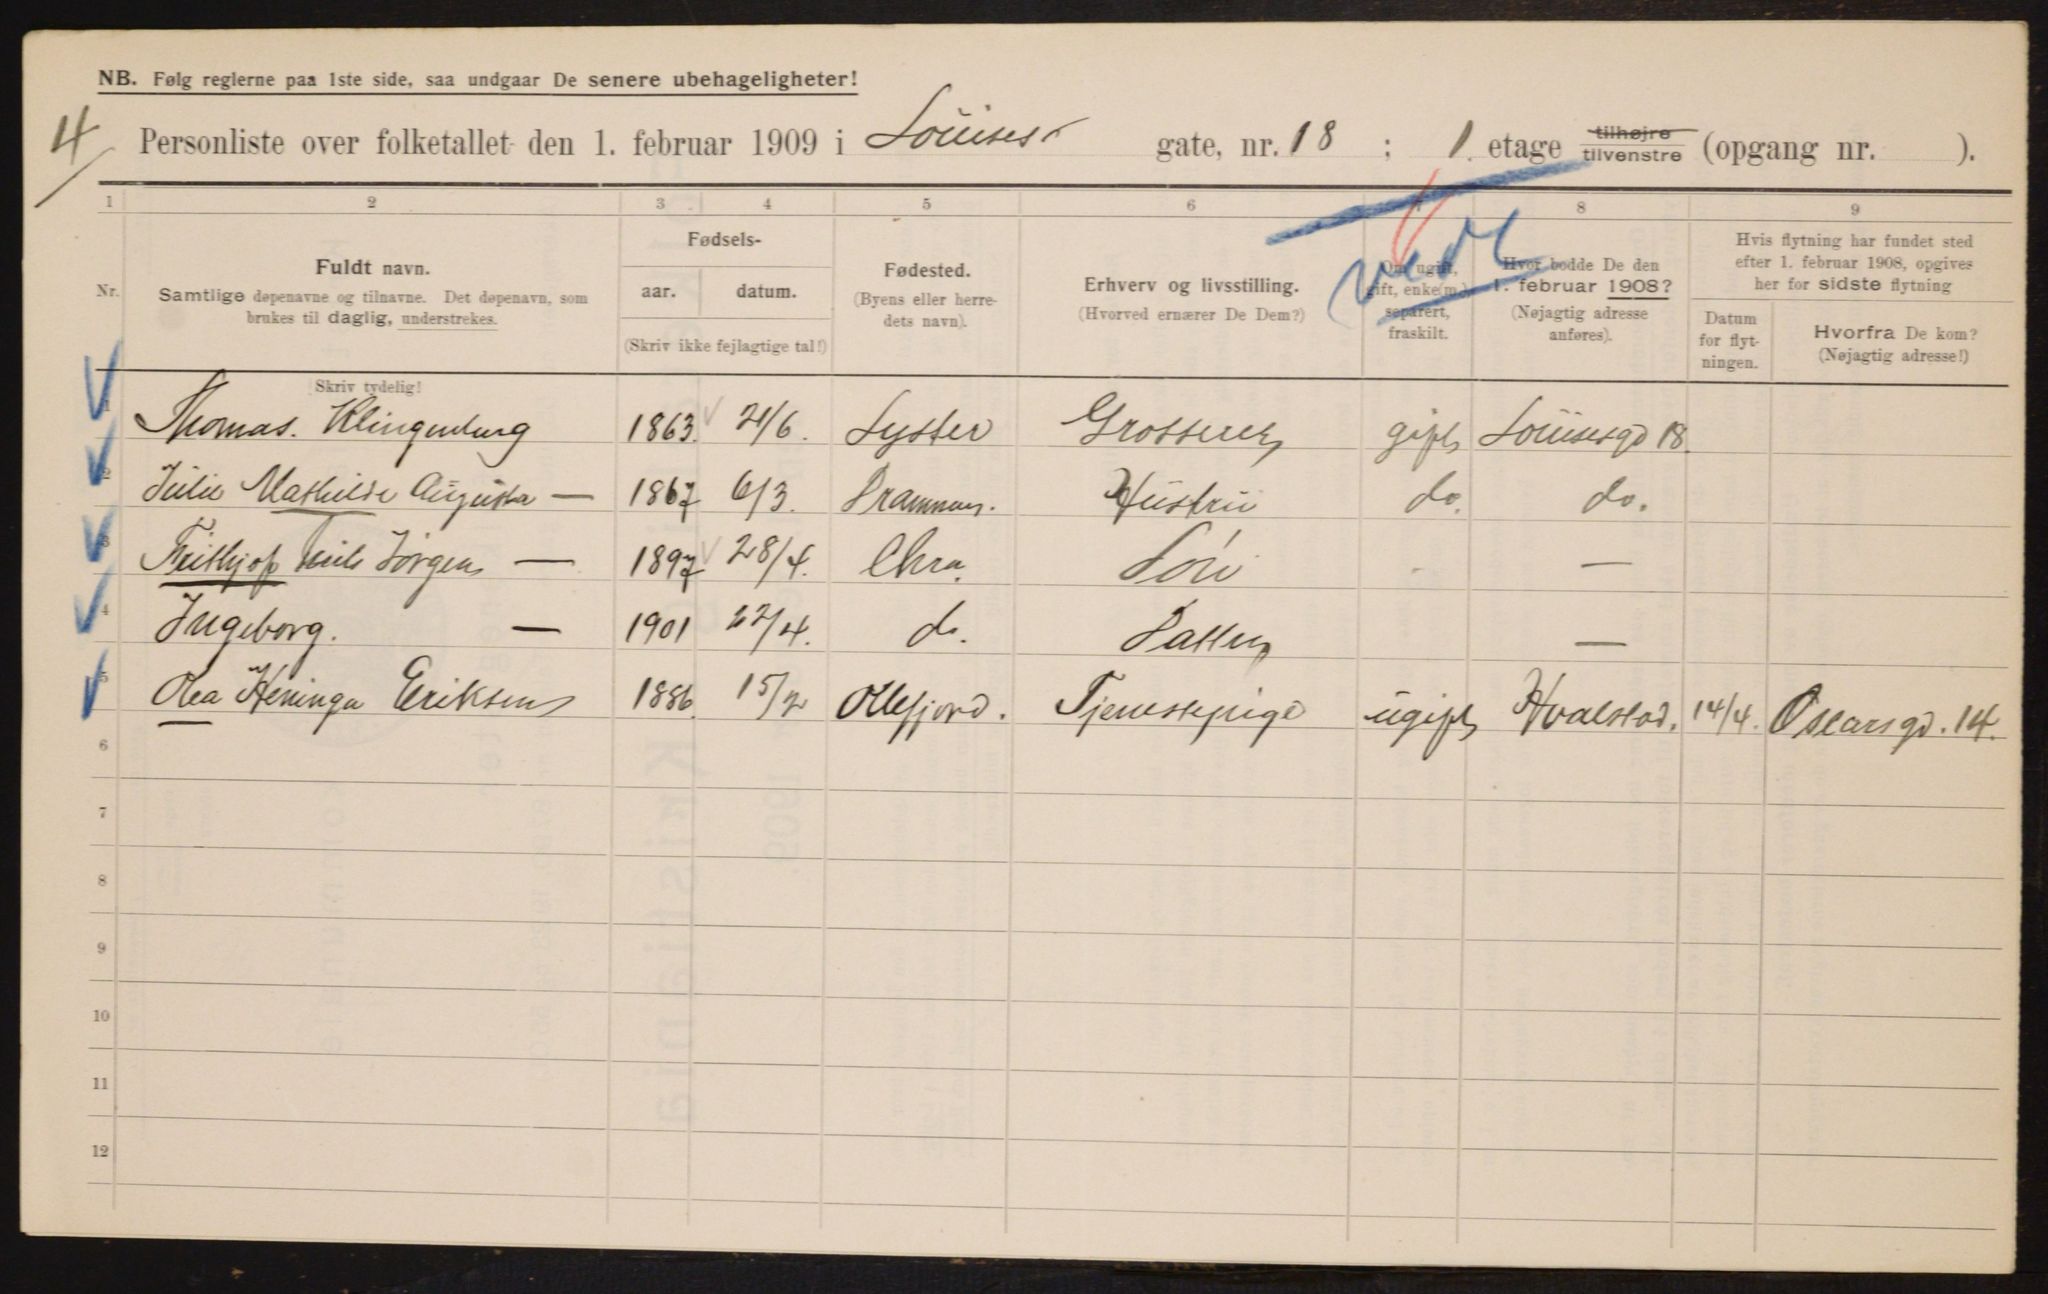 NB. Følg reglerne paa 1ste side, saa undgaar De senere ubehageligheter!
4
Personliste over folketallet den 1. februar 1909 i Louises gate, nr. 18 ; 1. etage tilhøjre tilvenstre (opgang nr. ).
1 2 3 4 5 6 7 8 9
Nr.
Fuldt navn.
Samtlige døpenavne og tilnavne. Det døpenavn, som
brukes til daglig, understrekes.
Skriv tydelig!
Fødsels-
aar. datum.
(Skriv ikke fejlagtige tal!)
Fødested.
(Byens eller herre-
dets navn).
Erhverv og livsstilling.
(Hvorved ernærer De Dem?)
Om ugift,
gift, enke(m.)
separert,
fraskilt.
Hvor bodde De den
1. februar 1908?
(Nøjagtig adresse
anføres).
Hvis flytning har fundet sted
efter 1. februar 1908, opgives
her for sidste flytning
Datum
for flyt-
ningen.
Hvorfra De kom?
(Nøjagtig adresse!)
1 Thomas. Klingenberg 1863. 21/6. Lyster Grosserer gift Louisesgd 18.
2 Julie Mathilde Augusta — 1867 6/3. Drammen. Hustru do. do.
3 Frithjof Jørgen — 1897 28/4. Chra. Søn - —
4 Ingeborg. — 1901 22/4. do. Datter —
5 Olea Henninga Eriksen 1886. 15/2 Ollefjord. Tjenestepige ugift Hvalstad. 14/4. Oscarsgd. 14.
6
7
8
9
10
11
12